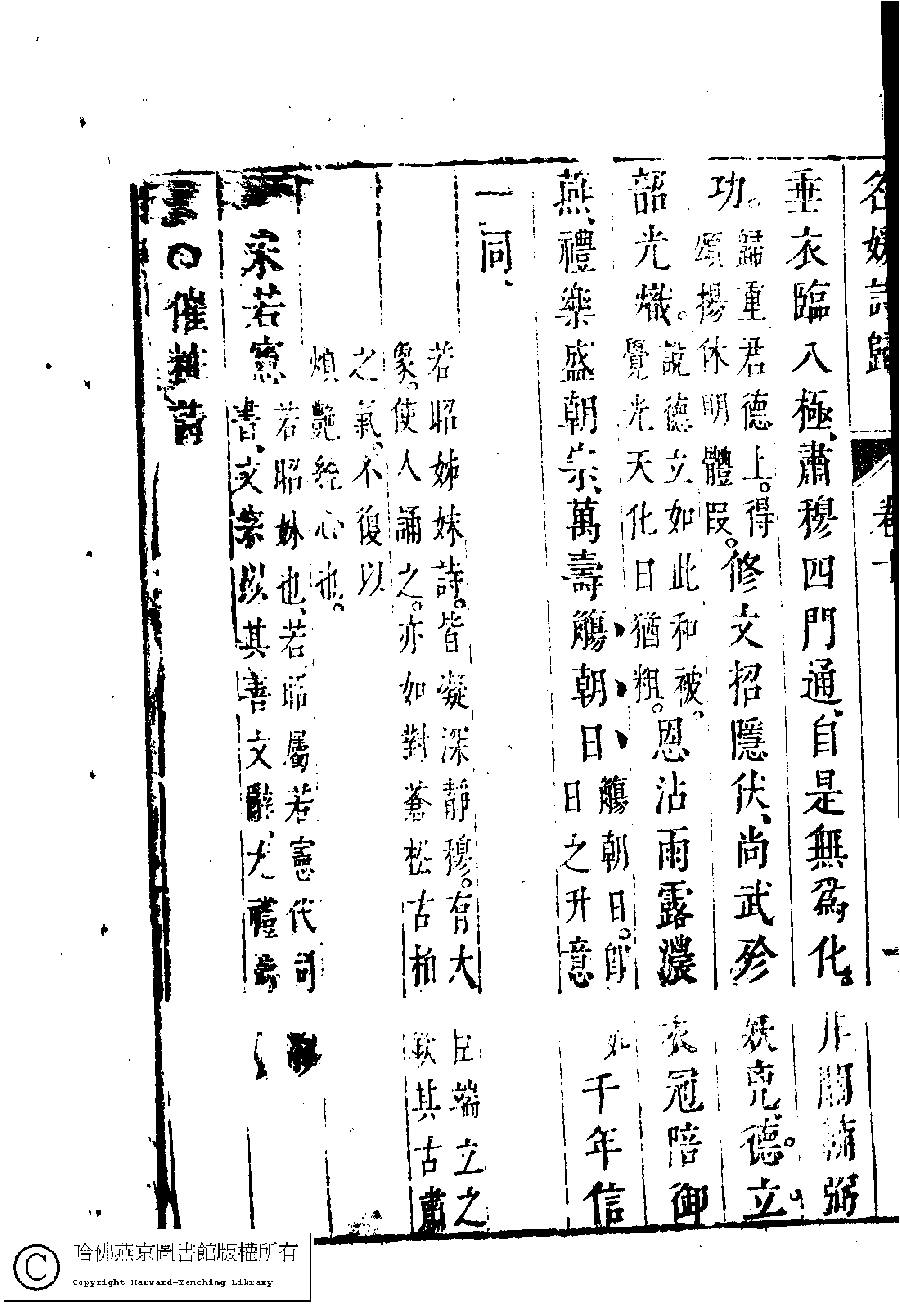 名媛詩歸 卷十
垂衣臨八極、肅穆四門通、自是無爲化、非關輔弼
功。歸重君德上。得頌揚休明體段。修文招隱伏、尚武殄妖兇德。立
韶光熾。說德立如此和被。覺光天化日猶粗。恩沾雨露濃衣冠陪御
燕、禮樂盛朝宗、萬壽觴朝日觴朝日。卽如日之升意千年信
一同、
若昭姊妹詩。皆凝深靜穆。有大臣端立之
象。使人誦之。亦如對蒼松古柏歎其古肅
之氣。不復以
煩艷經心也。
宋若憲若昭妹也、若昭屬若憲代司書、文宗以其善文辭、尤禮
催粧詩
哈佛燕京圖書館版權所有
Copyright Harvard-Yenching Library